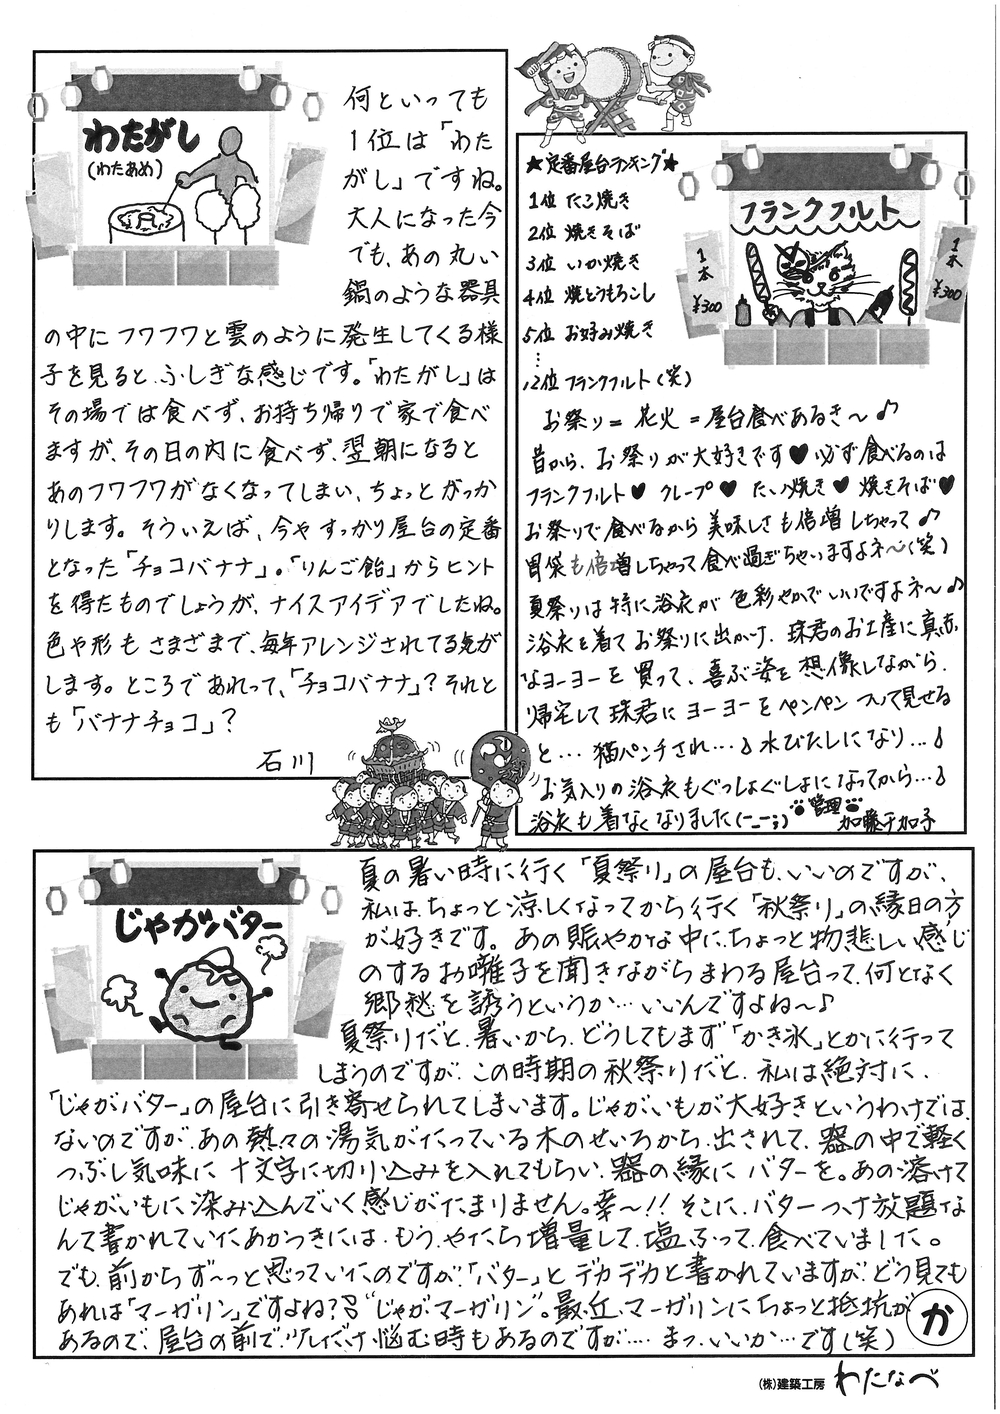 わたがし
(わたあめ)
何といっても
1位は「わた
がし」ですね。
大人になった今
でも、あの丸い
鍋のような器具
の中にフワフワと雲のように発生してくる様
子を見ると、ふしぎな感じです。「わたがし」は
その場では食べず、お持ち帰りで家で食べ
ますが、その日の内に食べず、翌朝になると
あのフワフワがなくなってしまい、ちょっとがっか
りします。そういえば、今やすっかり屋台の定番
となった「チョコバナナ」。「りんご飴」からヒント
を得たものでしょうが、ナイスアイデアでしたね。
色や形もさまざまで、毎年アレンジされてる気が
します。ところであれって、「チョコバナナ」？それと
も「バナナチョコ」？
石川
★定番屋台ランキング★
1位 たこ焼き
2位 焼きそば
3位 いか焼き
4位 焼とうもろこし
5位 お好み焼き
⋮
12位 フランクフルト(笑)
フランクフルト
1本
¥300
1本
¥300
お祭り＝花火＝屋台食べあるき〜♪
昔から、お祭りが大好きです♥必ず食べるのは
フランクフルト♥ クレープ♥ たこ焼き♥ 焼きそば♥
お祭りで食べるから美味しさも倍増しちゃって♪
胃袋も倍増しちゃって食べ過ぎちゃいますよネ〜(笑)
夏祭りは特に浴衣が色彩やかでいいですよネ〜♪
浴衣を着てお祭りに出かけ、珠君のお土産に真赤
なヨーヨーを買って、喜ぶ姿を想像しながら、
帰宅して珠君にヨーヨーをペンペンついて見せる
と… 猫パンチされ…♪水びたしになり…♪
お気入りの浴衣もぐっしょぐしょになってから…♪
浴衣も着なくなりました(-_-;)
管理 加藤千加子
じゃがバター
夏の暑い時に行く「夏祭り」の屋台も、いいのですが、
私は、ちょっと涼しくなってから行く「秋祭り」の縁日の方
が好きです。あの賑やかな中に、ちょっと物悲しい感じ
のするお囃子を聞きながらまわる屋台って、何となく
郷愁を誘うというか…いいんですよね〜♪
夏祭りだと、暑いから、どうしてもまず「かき氷」とかに行って
しまうのですが、この時期の秋祭りだと、私は絶対に、
「じゃがバター」の屋台に引き寄せられてしまいます。じゃがいもが大好きというわけでは、
ないのですが、あの熱々の湯気がたっている木のせいろから、出されて、器の中で軽く
つぶし気味に十文字に切り込みを入れてもらい、器の縁にバターを。あの溶けて
じゃがいもに染み込んでいく感じがたまりません。幸〜!! そこに、バターつけ放題な
んて書かれていたあかつきには、もう、やたら増量して、塩ふって、食べていました。
でも、前からず〜っと思っていたのですが、「バター」とデカデカと書かれていますが、どう見ても
あれは「マーガリン」ですよね？？“じゃがマーガリン”。最近、マーガリンにちょっと抵抗が
あるので、屋台の前で、少しだけ悩む時もあるのですが…… まっ、いいか…です(笑)
か
(株)建築工房 わたなべ